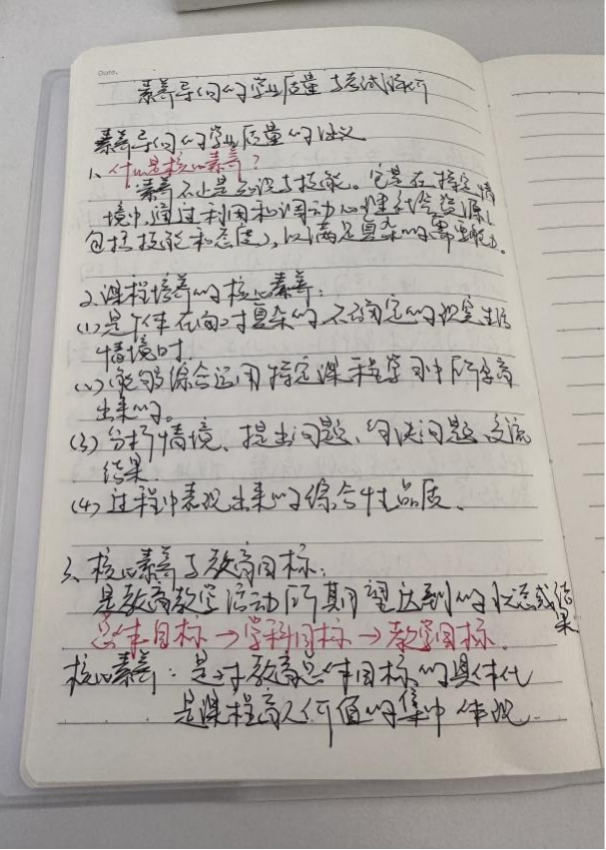 Date.
素养导向的学业质量与考试评价
素养导向的学业质量的
1、什么是核心素养?
素养不止是知识与技能。它是在特定情
境中,通过利用和调动心理社会资源(
包括技能和态度),以满足复杂的需要能力。
2.课程培养的核心素养:
(1)是个体在面对复杂的,不确定的现实生活
情境时.
(2)能够综合运用特定课程学习中所孕育
出来的。
(3)分析情境、提出问题、解决问题、交流
结果.
(4)过程中表现出来的综合性品质.
3、核心素养与教育目标:
是教育教学活动所期望达到的状态或结果
总体目标→学科目标→教学目标.
核心素养:是对教育总体目标的具体化
是课程育人价值的集中体现.